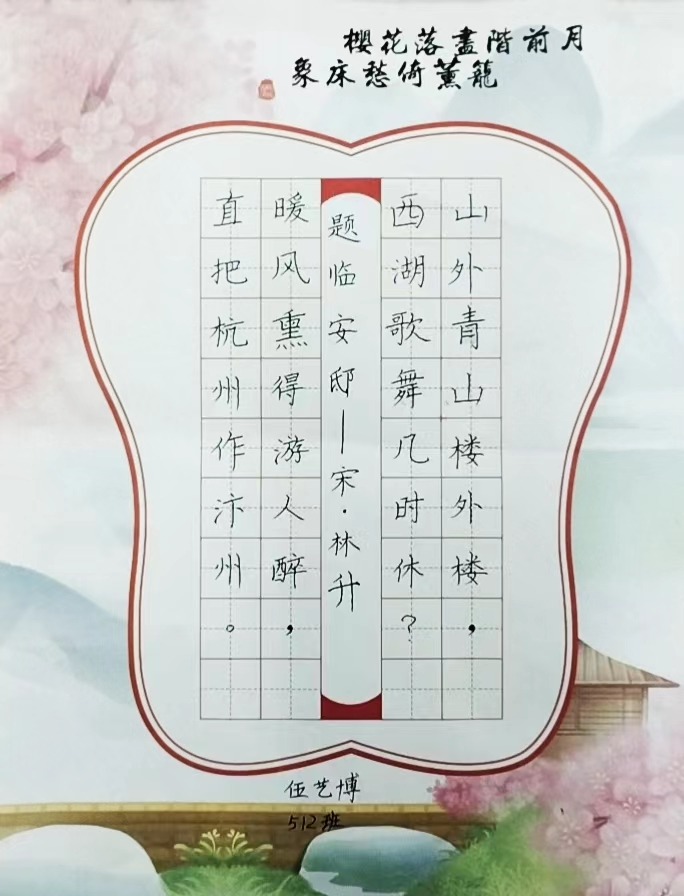 櫻花落盡階前月
象床愁倚薰籠
山外青山楼外楼，
西湖歌舞几时休？
题临安邸—宋·林升
暖风熏得游人醉，
直把杭州作汴州。
伍艺博
512班